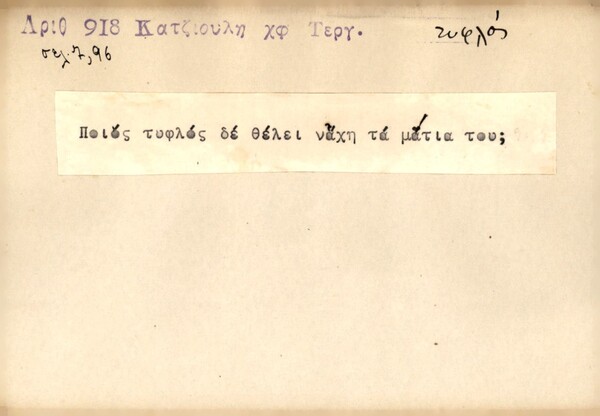 Αριθ 918 Κατζιουλη χφ Τεργ.
τυφλός
σελ. 7, 96
Ποιός τυφλός δέ θέλει νἄχη τά μάτια του;